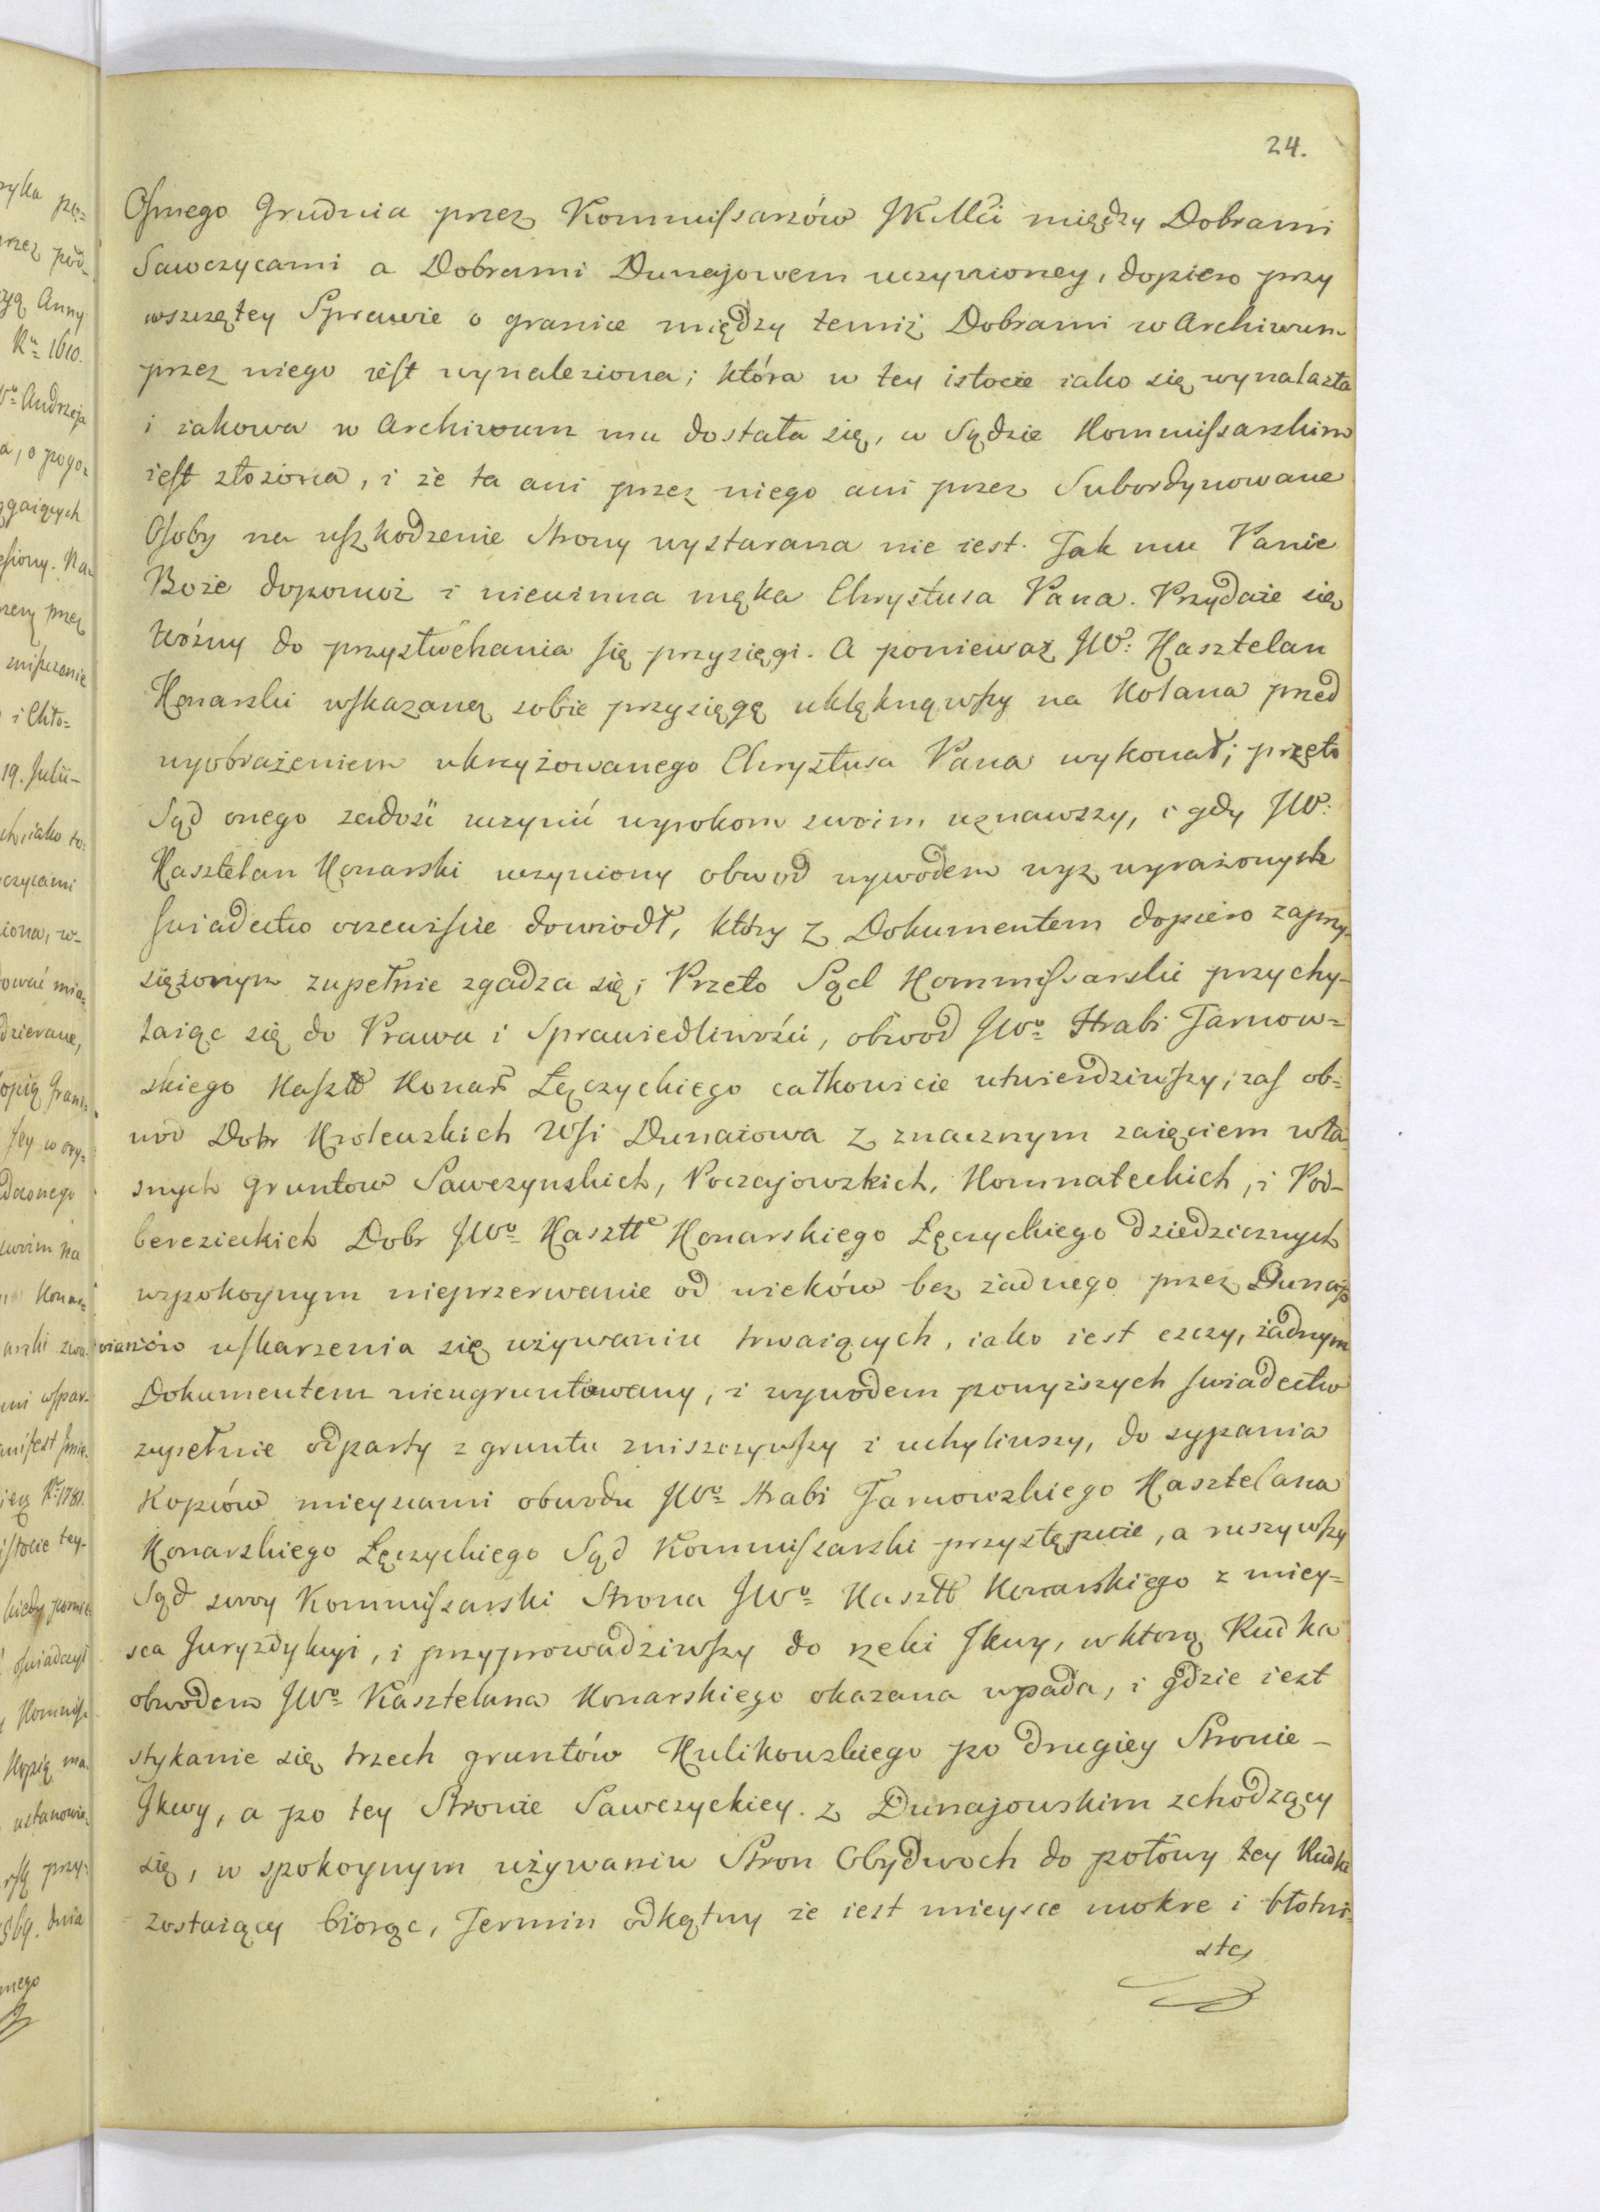 24.
Osmego Grudnia przez Kommissarzów JKMci między Dobrami
Sawczycami a Dobrami Dunajowem uczynioney, dopiero przy
wszczętey Sprawie o granice między temiż Dobrami w Archiwum
przez niego iest wynaleziona; która w tey istocie iako się wynalazła
i iakowa w Archiwum mu dostała się, w Sądzie Kommissarskim
iest złożona, i że ta ani przez niego ani przez Subordynowane
Osoby na uszkodzenie Strony wystarana nie iest. Jak mu Panie
Boże dopomoż i niewinna męka Chrystusa Pana. Przydaie się
Woźny do przysłuchania się przysięgi. A ponieważ JW: Kasztelan
Konarski wskazaną sobie przysięgę uklęknąwszy na Kolana przed
wyobrażeniem ukrzyżowanego Chrystusa Pana wykonał; przeto
Sąd onego zadość uczynić wyrokom swoim uznawszy, i gdy JW:
Kasztelan Konarski uczyniony obwod wywodem wyż wyrażonych
swiadectw oczewiscie dowiodł, który z Dokumentem dopiero zaprzy-
siężonym zupełnie zgadza się; Przeto Sąd Kommissarski przychy-
laiąc się do Prawa i Sprawiedliwości, obwod JWo Hrabi Tarnow=
skiego Kasztt Konar Łęczyckiego całkowicie utwierdziwszy; zas ob=
wod Dobr Krolewskich Wsi Dunaiowa z znacznym zaięciem wła
snych gruntow Sawczynskich, Poczajowskich, Komnateckich, i Pod-
berezieckich Dobr JWo Kasztte Konarskiego Łęczyckiego dziedzicznych
wspokoynym nieprzerwanie od wieków bez żadnego przez Dunajo
wianów uskarzenia się używaniu trwaiących, iako iest czczy, żadnym
Dokumentem nieugruntowany, i wywodem powyższych swiadectw
zupełnie odparty z gruntu zniszczywszy i uchyliwszy, do sypania
Kopców mieyscami obwodu JWo Hrabi Tarnowskiego Kasztelana
Konarskiego Łęczyckiego Sąd Kommissarski przystępuie, a ruszywszy
Sąd swoy Kommissarski Strona JWo Kasztt Konarskiego z miey=
sca Juryzdykcyi, i przyprowadziwszy do rzeki Jkwy, wktorą Rudka
obwodem JWo Kasztelana Konarskiego okazana wpada, i gdzie iest
stykanie się trzech gruntów Kulikowskiego po drugiey Stronie -
Jkwy, a po tey Stronie Sawczyckiey z Dunajowskim zchodzący
się, w spokoynym używaniu Stron Obydwoch do połowy tey Rudki
zostaiący biorąc, Termin odkątny że iest mieysce mokre i błotni=
ste